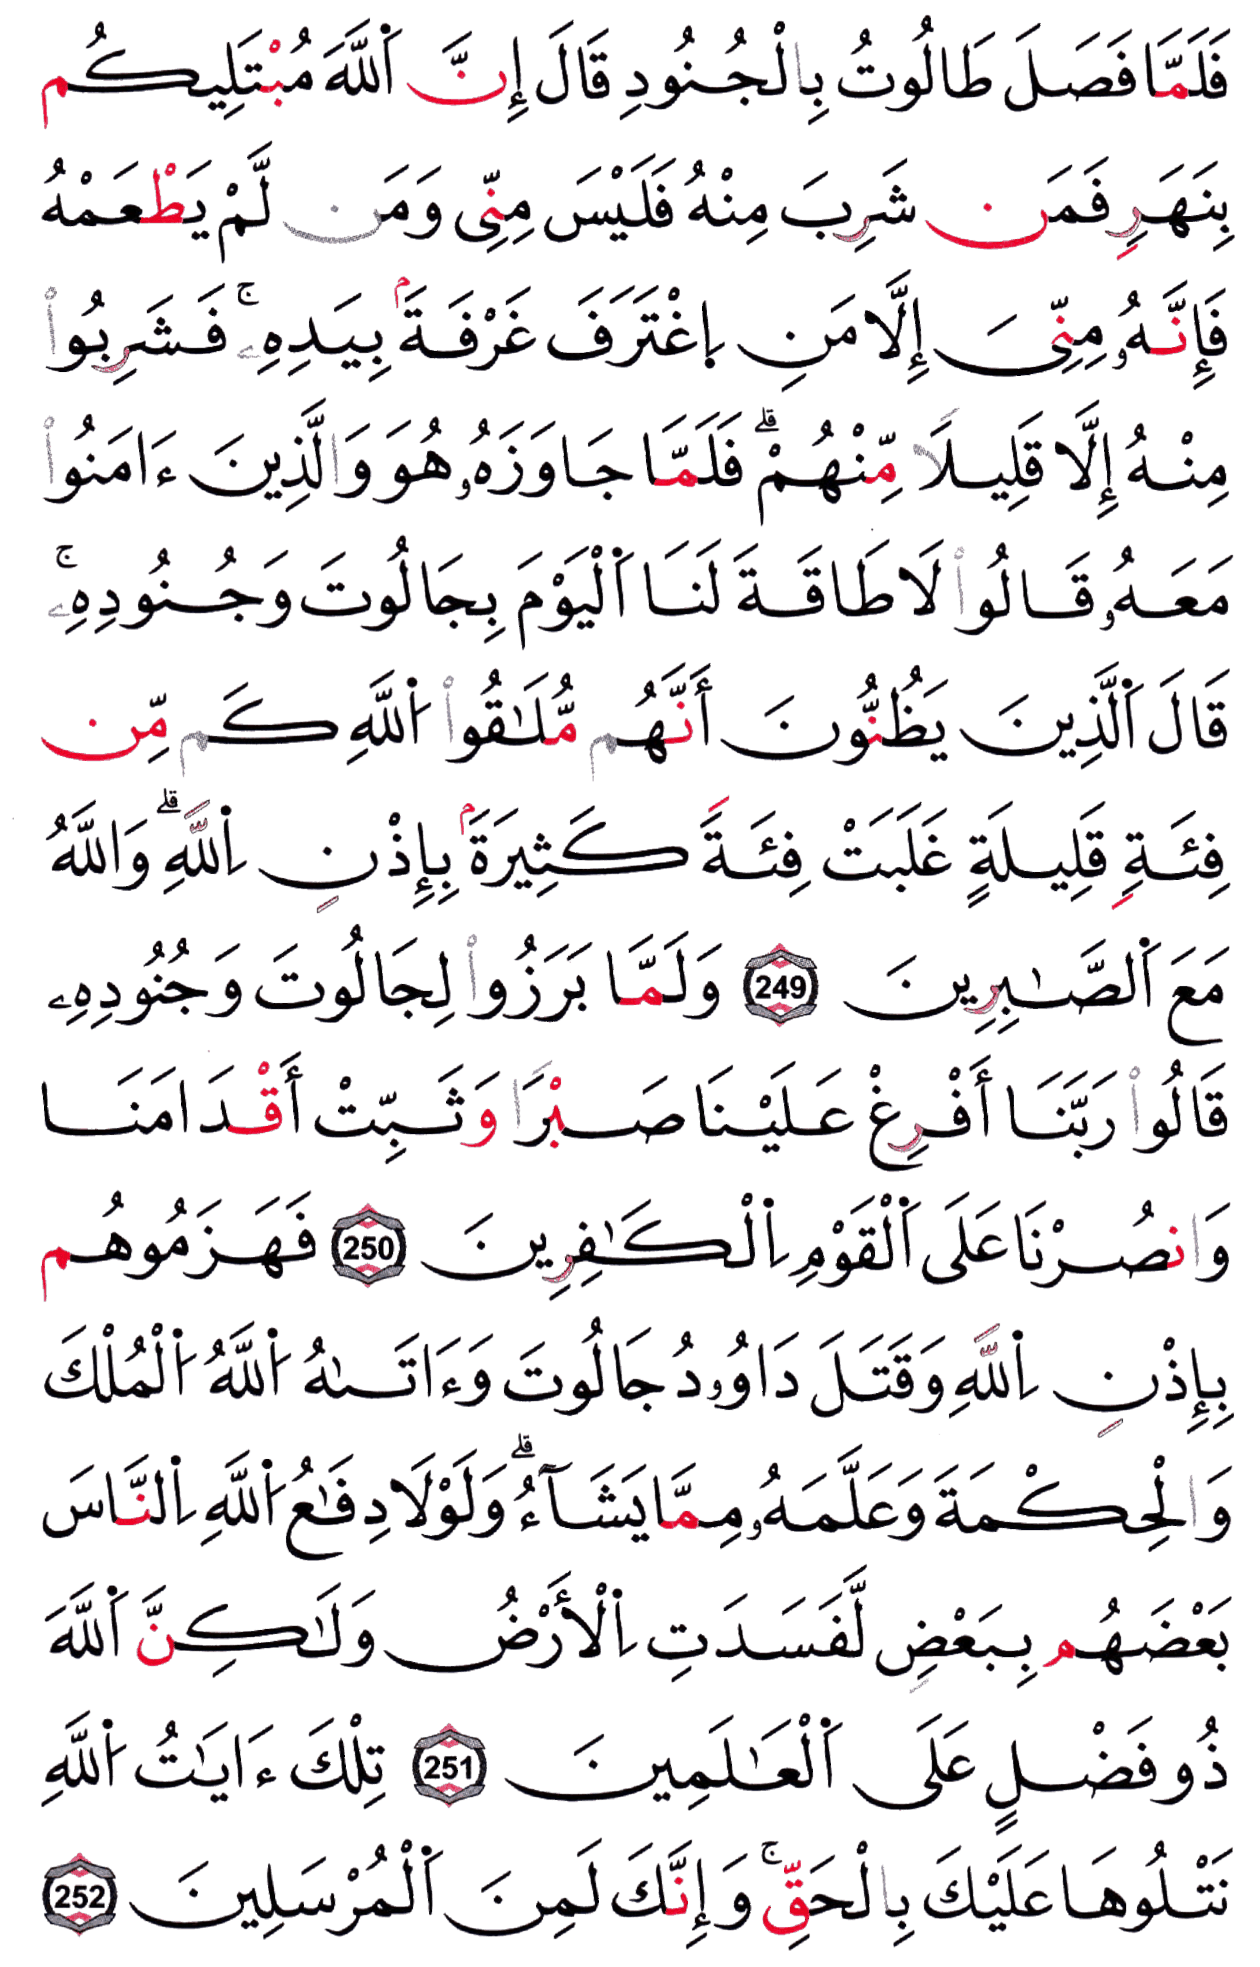 فَلَمَّا فَصَلَ طَالُوتُ بِالْجُنُودِ قَالَ إِنَّ اَ۬للَّهَ مُبْتَلِيكُم
بِنَهَرٍ فَمَن شَرِبَ مِنْهُ فَلَيْسَ مِنِّي وَمَن لَّمْ يَطْعَمْهُ
فَإِنَّهُۥ مِنِّيَ إِلَّا مَنِ اِ۪غْتَرَفَ غَرْفَةَۢ بِيَدِهِۦۚ فَشَرِبُواْ
مِنْهُ إِلَّا قَلِيلًا مِّنْهُمْۗ فَلَمَّا جَاوَزَهُۥ هُوَ وَالَّذِينَ ءَامَنُواْ
مَعَهُۥ قَالُواْ لَا طَاقَةَ لَنَا اَ۬لْيَوْمَ بِجَالُوتَ وَجُنُودِهِۦۚ
قَالَ اَ۬لَّذِينَ يَظُنُّونَ أَنَّهُم مُّلَٰقُواْ اُ۬للَّهِ كَم مِّن
فِئَةٍ قَلِيلَةٍ غَلَبَتْ فِئَةً كَثِيرَةَۢ بِإِذْنِ اِ۬للَّهِۗ وَاللَّهُ
مَعَ اَ۬لصَّٰبِرِينَ 249 وَلَمَّا بَرَزُواْ لِجَالُوتَ وَجُنُودِهِۦ
قَالُواْ رَبَّنَا أَفْرِغْ عَلَيْنَا صَبْرًا وَثَبِّتْ أَقْدَامَنَا
وَانصُرْنَا عَلَى اَ۬لْقَوْمِ اِ۬لْكَٰفِرِينَ 250 فَهَزَمُوهُم
بِإِذْنِ اِ۬للَّهِ وَقَتَلَ دَاوُۥدُ جَالُوتَ وَءَاتَىٰهُ اُ۬للَّهُ اُ۬لْمُلْكَ
وَالْحِكْمَةَ وَعَلَّمَهُۥ مِمَّا يَشَآءُۗ وَلَوْلَا دِفَٰعُ اُ۬للَّهِ اِ۬لنَّاسَ
بَعْضَهُم بِبَعْضٍ لَّفَسَدَتِ اِ۬لْأَرْضُ وَلَٰكِنَّ اَ۬للَّهَ
ذُو فَضْلٍ عَلَى اَ۬لْعَٰلَمِينَ 251 تِلْكَ ءَايَٰتُ اُ۬للَّهِ
نَتْلُوهَا عَلَيْكَ بِالْحَقِّۚ وَإِنَّكَ لَمِنَ اَ۬لْمُرْسَلِينَ 252